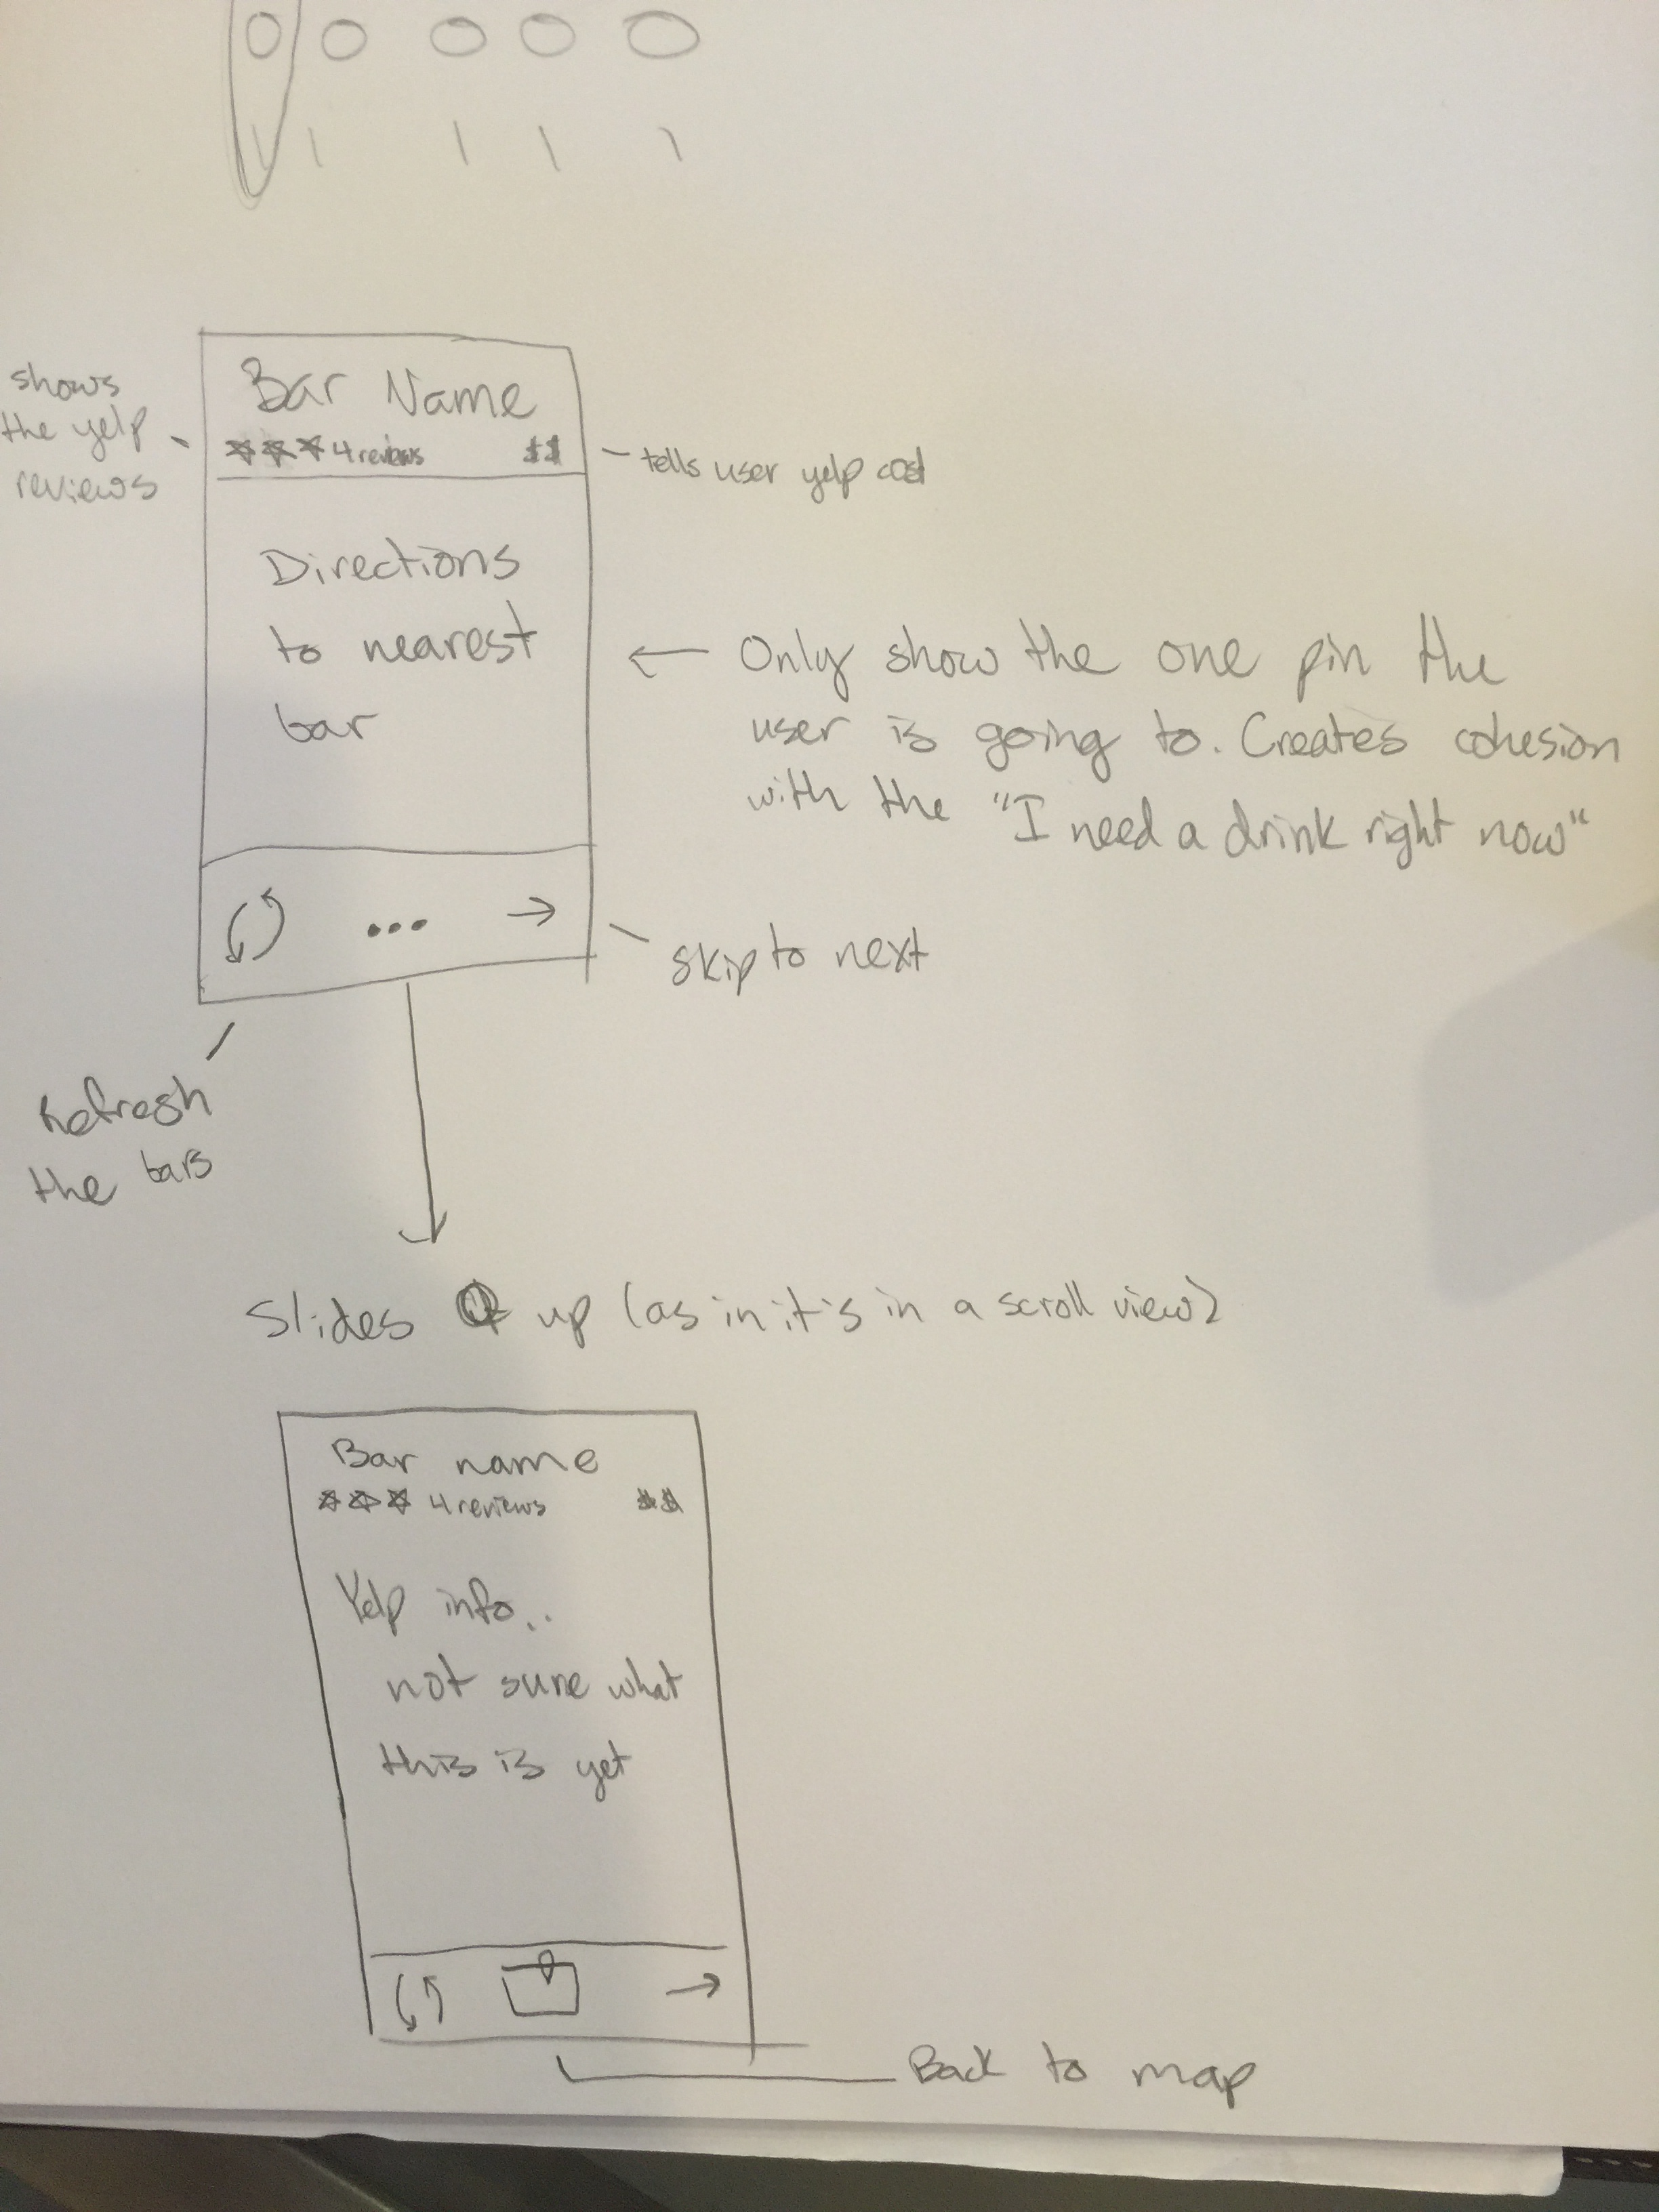 Bar Name
shows
the yelp
reviews
4 reviews $$
tells user yelp cost
Directions
to nearest
bar
Only show the one pin the
user is going to. Creates cohesion
with the "I need a drink right now"
...
skip to next
Refresh
the bars
Slides up (as in it's in a scroll view)
Bar name
4 reviews $$
Yelp info..
not sure what
this is yet
Back to map